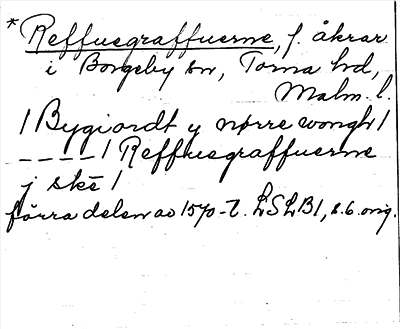 * Reffuegraffuerne, f. åkrar
i Borgeby sn, Torna hd,
Malm. l.
/ Bygiordt y nørre wongh /
---- / Reffuegraffuerne
j skē /
förra delen av 1570-t. LSLB1, s. 6. orig.